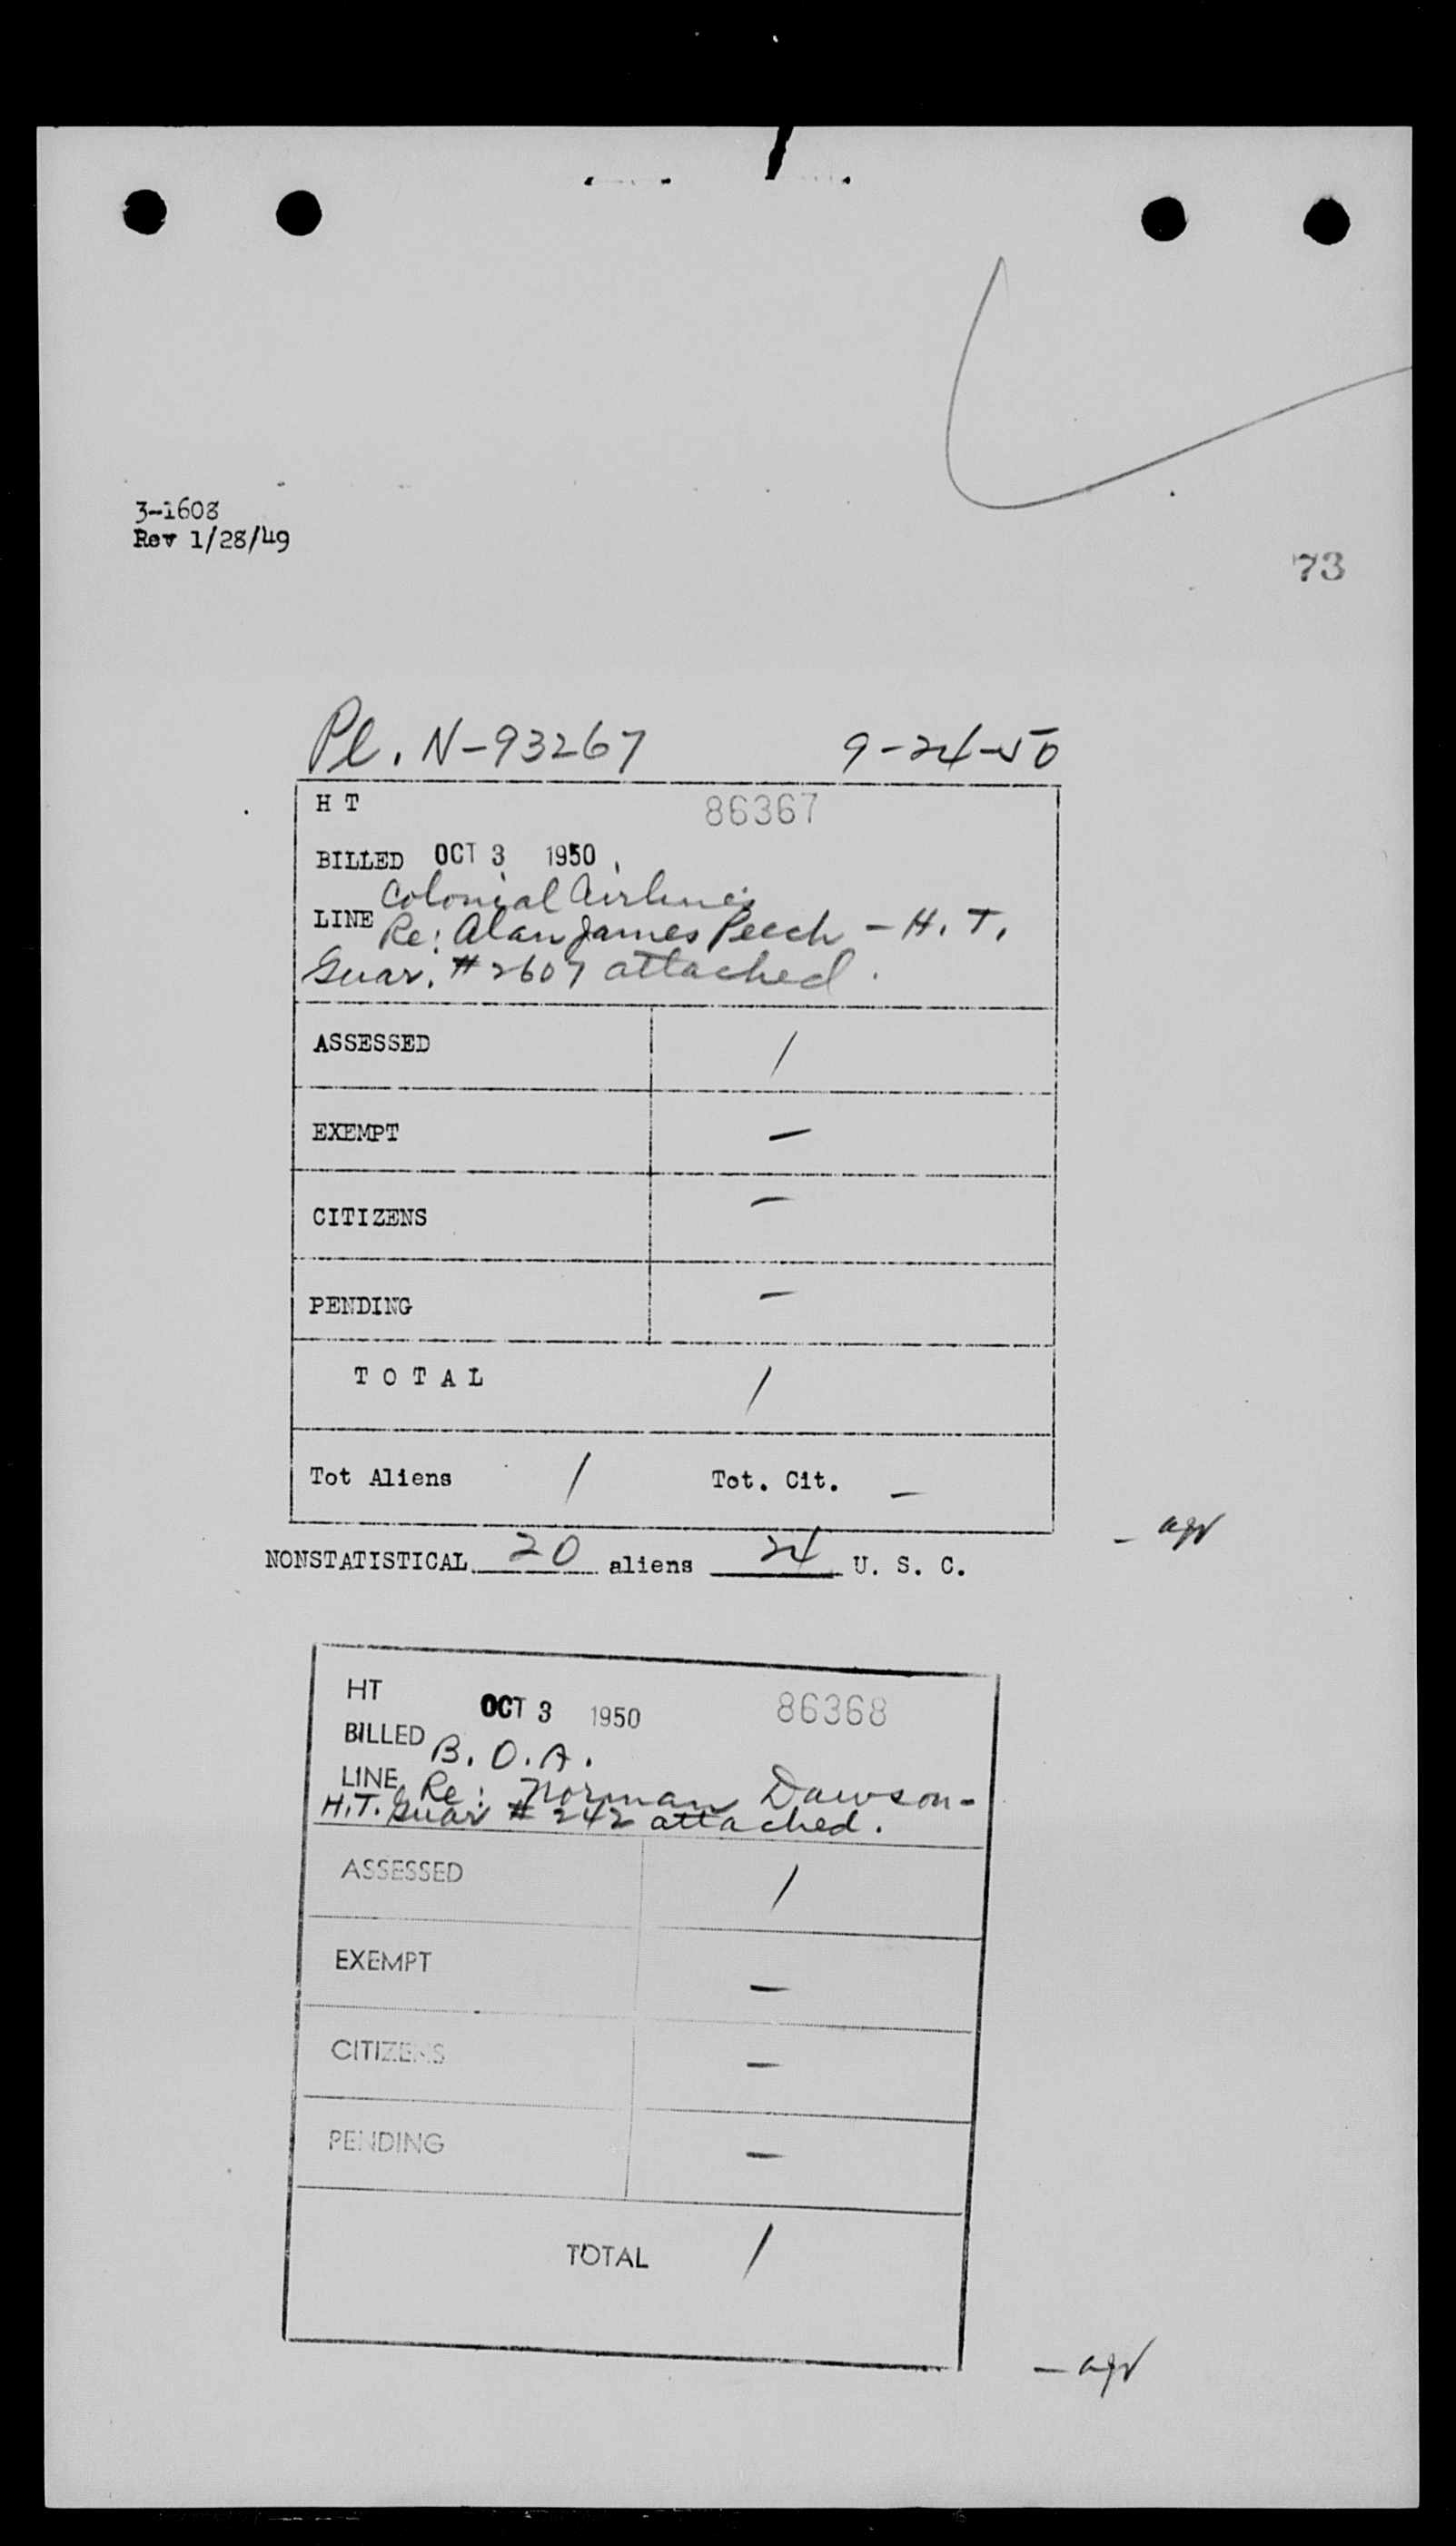 3-1608
Rev 1/28/49
73
Pl. N-93267 9-24-50
H T 86367
BILLED OCT 3 1950
Colonial Airlines
LINE Re: Alan James Peech - H. T.
Guar. # 2607 attached.
ASSESSED 1
EXEMPT —
CITIZENS —
PENDING —
T O T A L 1
Tot Aliens 1 Tot. Cit. —
NONSTATISTICAL 20 aliens 24 U. S. C.
HT OCT 3 1950 86368
BILLED B. O. A.
LINE Re: Norman Dawson-
H.T. Guar # 242 attached.
ASSESSED 1
EXEMPT —
CITIZENS —
PENDING —
TOTAL 1